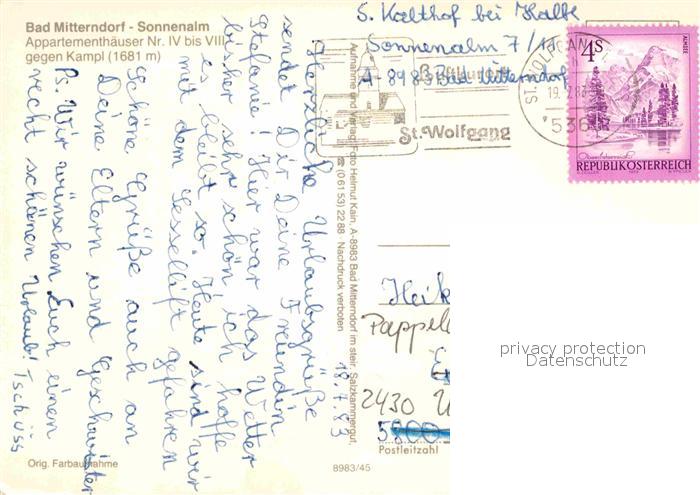 Bad Mitterndorf - Sonnenalm
Appartementhäuser Nr. IV bis VIII
gegen Kampl (1681 m)
S. Kalthof bei Halbe
Sonnenalm 7/11
A-8983 Bad Mitterndorf
Luftkurort
St. Wolfgang
19. 7. 83
5360
4S
REPUBLIK ÖSTERREICH
18.7.83
Herzliche Urlaubsgrüße
sendet Dir Deine Freundin
Stefanie! Hier war das Wetter
bisher sehr schön ich hoffe
es bleibt so. Heute sind wir
mit dem Sessellift gefahren
Schöne Grüße auch an
Deine Eltern und Geschwister
Ps: Wir wünschen Euch einen
recht schönen Urlaub! Tschüss
Aufnahme und Verlag: Foto Helmut Kain, A-8983 Bad Mitterndorf im steir. Salzkammergut,
☎ (0 61 53) 22 88 · Nachdruck verboten
Heik
Pappel
2430
5800
Postleitzahl
privacy protection
Datenschutz
Orig. Farbaufnahme
8983/45